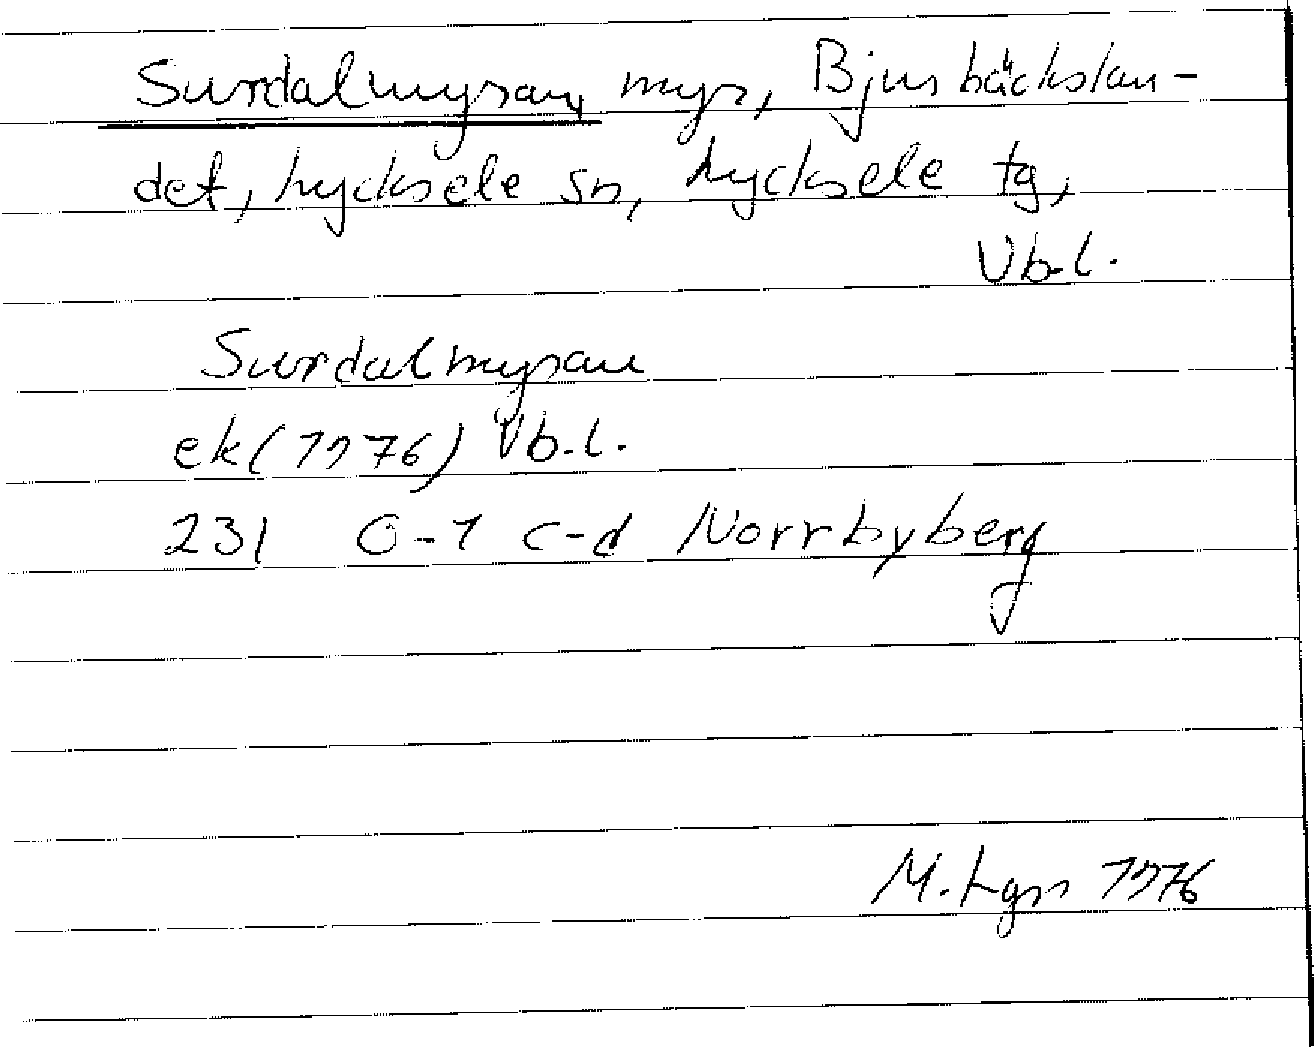 Surdalmyran, myr, Bjursbäckslan-
det, Lycksele sn, Lycksele tg,
Vb.l.
Surdalmyran
ek(1976) Vb.l.
231 0-1 c-d Norrbyberg
M. Lgn 1976